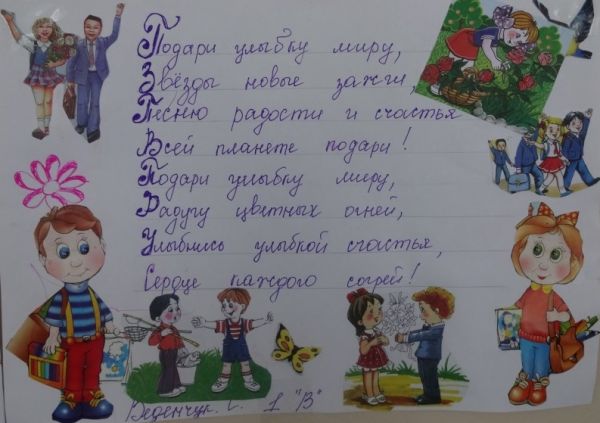 Подари улыбку миру,
Звёзды новые зажги,
Песню радости и счастья
Всей планете подари!
Подари улыбку миру,
Радугу цветных огней,
Улыбнись улыбкой счастья,
Сердце каждого согрей!
1 "В"